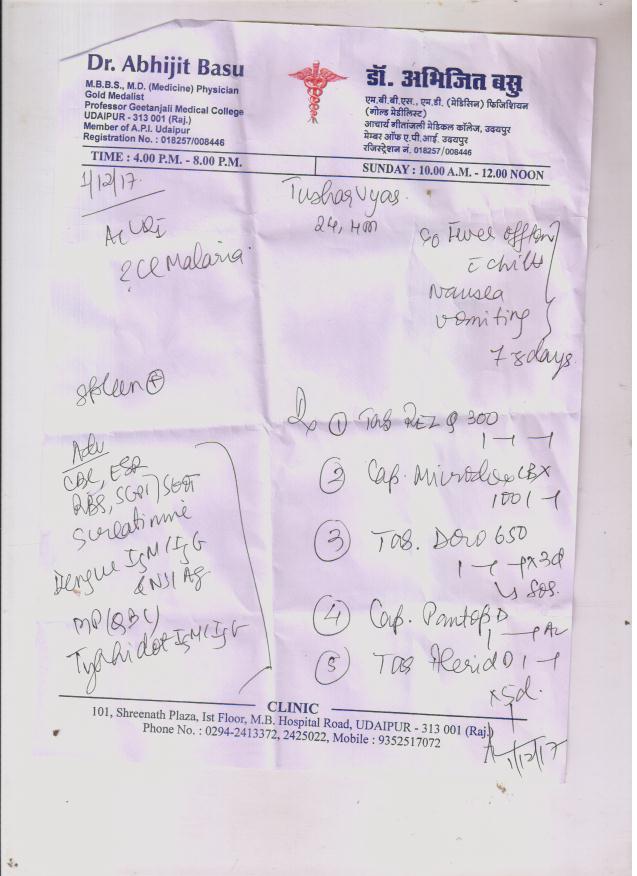 Dr. Abhijit Basu
M.B.B.S., M.D. (Medicine) Physician
Gold Medalist
Professor Geetanjali Medical College
UDAIPUR - 313 001 (Raj.)
Member of A.P.I. Udaipur
Registration No. : 018257/008446
डॉ. अभिजित बसु
एम.बी.बी.एस., एम.डी. (मेडिसिन) फिजिशियन
(गोल्ड मेडीलिस्ट)
आचार्य गीतांजली मेडिकल कॉलेज, उदयपुर
मेम्बर ऑफ ए.पी.आई. उदयपुर
रजिस्ट्रेशन नं. 018257/008446
TIME : 4.00 P.M. - 8.00 P.M.
SUNDAY : 10.00 A.M. - 12.00 NOON
1/12/17.
Tushar Vyas.
24,
Ac URI
?Cl Malaria
Fever
c chills
Nausea
vomiting
7-8 days.
Spleen +
Adv
CBC, ESR
RBS, SGPT/SGOT
S creatinine
Dengue IgM/IgG
& NS1 Ag
MP(QBC)
Typhidot IgM/IgG
Rx
1 Tab 300
1-1-1
2 Cap.
3 Tab. Doro 650
1-1-1 x3d
SOS.
4 Cap. Pantop D
1
5 Tab
x5d.
1/12/17
CLINIC
101, Shreenath Plaza, Ist Floor, M.B. Hospital Road, UDAIPUR - 313 001 (Raj.)
Phone No. : 0294-2413372, 2425022, Mobile : 9352517072